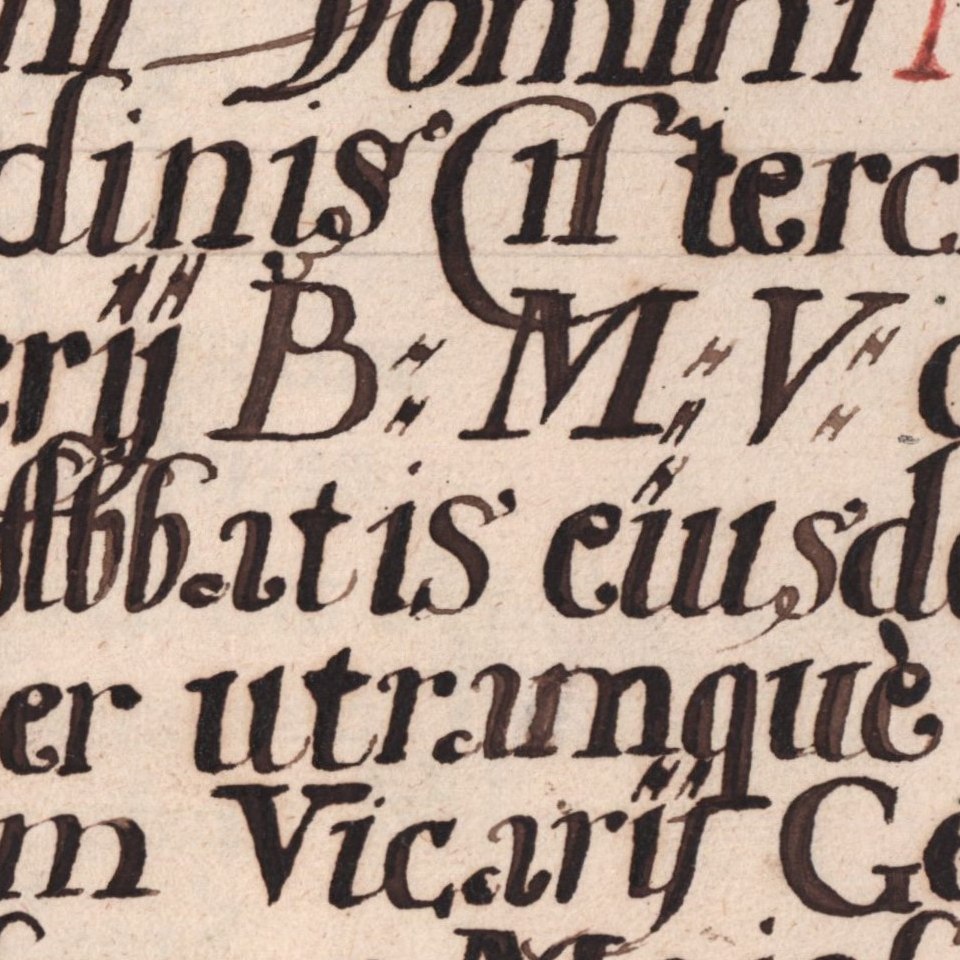 ni Domini
dinis Cisterc
erij B: M: V:
Abbatis eiusde
er utramquè
m Vicarij Ge